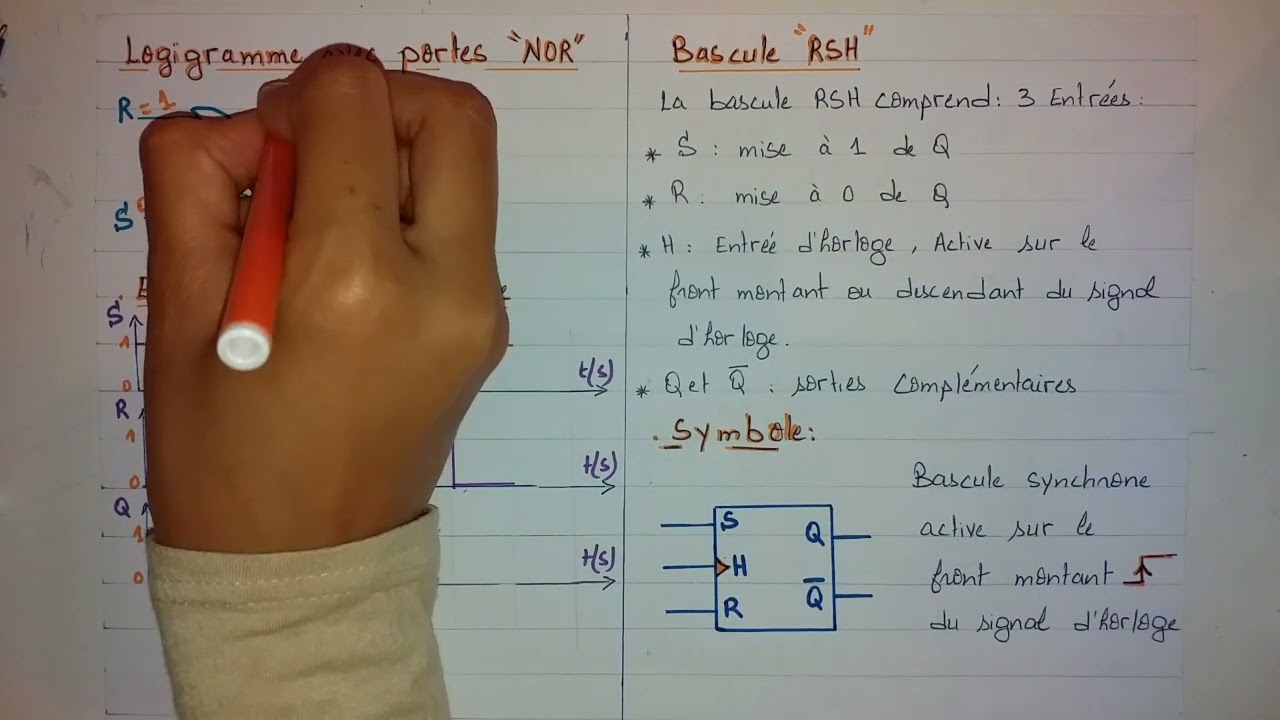 Logigramme avec portes "NOR"
R = 1
S
S
1
0
t(s)
R
1
0
t(s)
Q
1
0
t(s)
Bascule "RSH"
La bascule RSH comprend: 3 Entrées:
* S : mise à 1 de Q
* R : mise à 0 de Q
* H : Entrée d'horloge, Active sur le
front montant ou descendant du signal
d'horloge.
* Q et Q̅ : sorties complémentaires
. Symbole:
S
H
R
Q
Q̅
Bascule synchrone
active sur le
front montant
du signal d'horloge